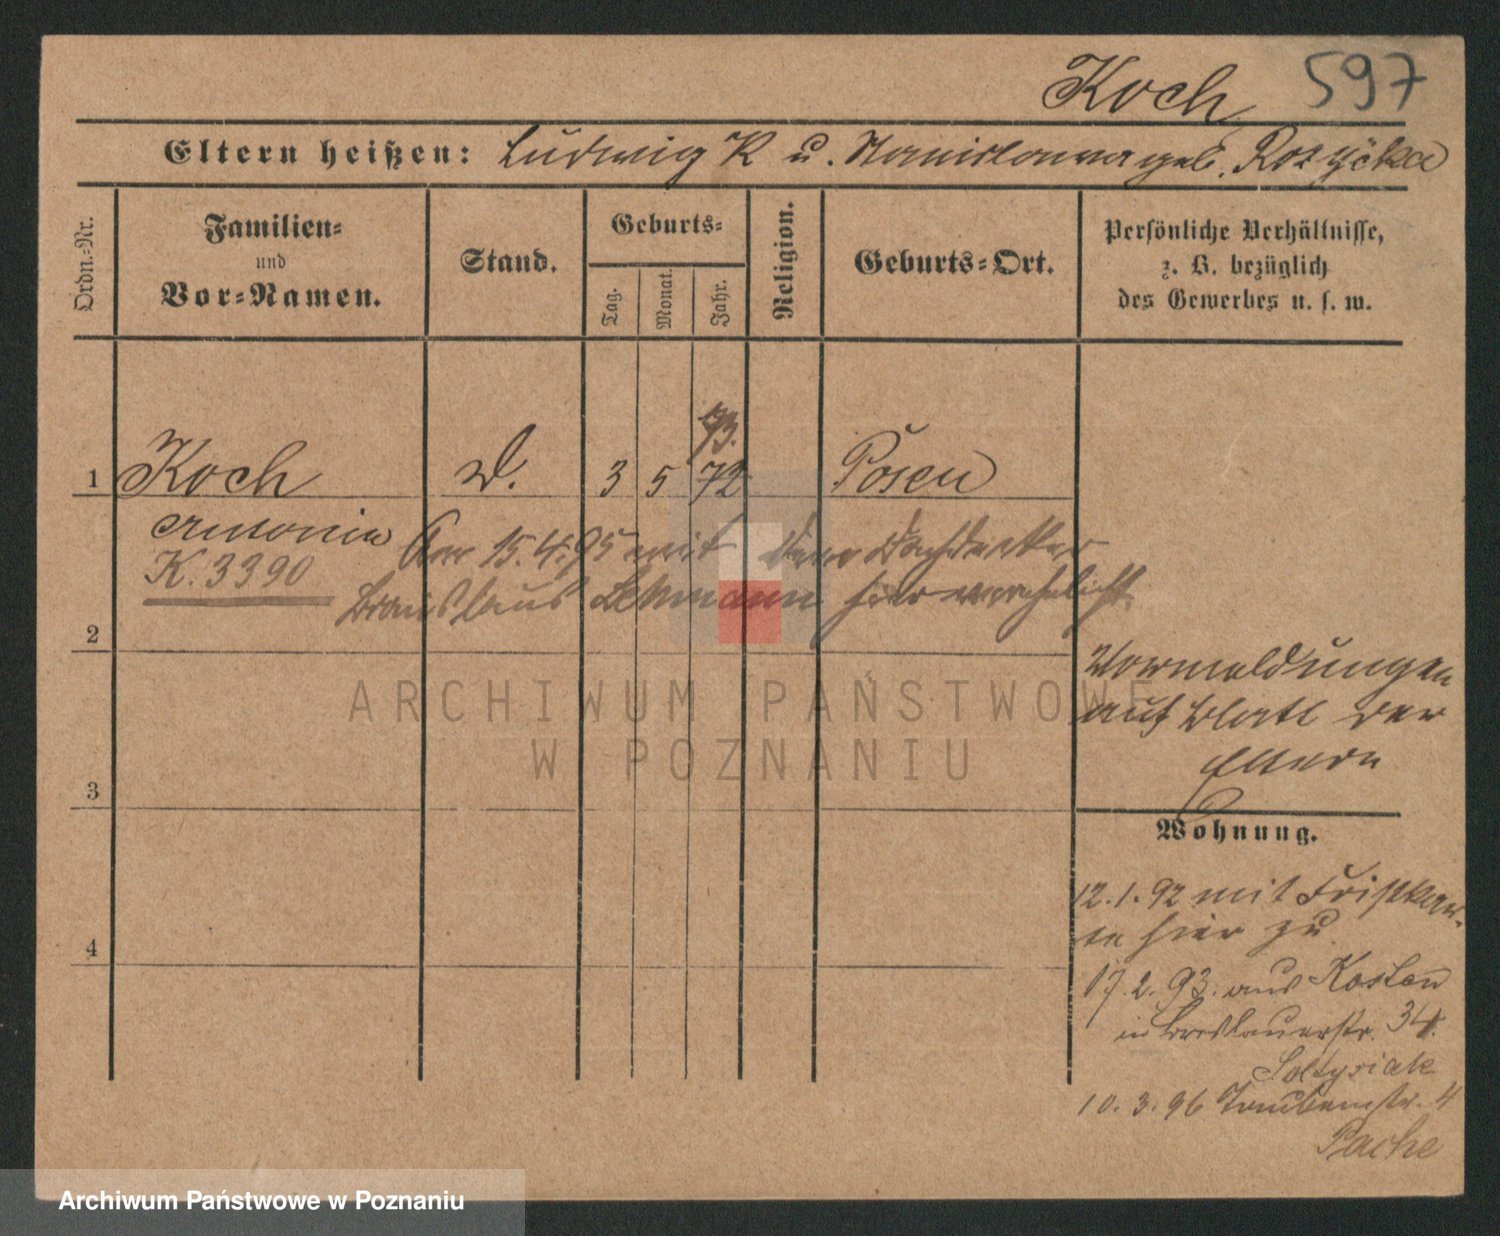 Koch 597
Eltern heißen: Ludwig K u. Stanislawa geb. Rozycka
Ordn.-Nr.
Familien-
und
Vor-Namen.
Stand.
Geburts-
Tag.
Monat.
Jahr.
Religion.
Geburts-Ort.
Persönliche Verhältnisse,
z. B. bezüglich
des Gewerbes u. s. w.
73.
1 Koch d. 3 5 72 Posen
Antonie
K. 3390
Am 15.4.95 mit dem Dachdecker
Lehmann hier verehelicht.
2
3
4
Vormeldungen
auf Blatt der
Eltern
Wohnung.
12.1.92 mit
hier zu
17.2.93. aus Kosten
in Breslauerstr. 34.
Soltysiak
10.3.96 Taubenstr. 4
Pache
ARCHIWUM PAŃSTWOWE
W POZNANIU
Archiwum Państwowe w Poznaniu